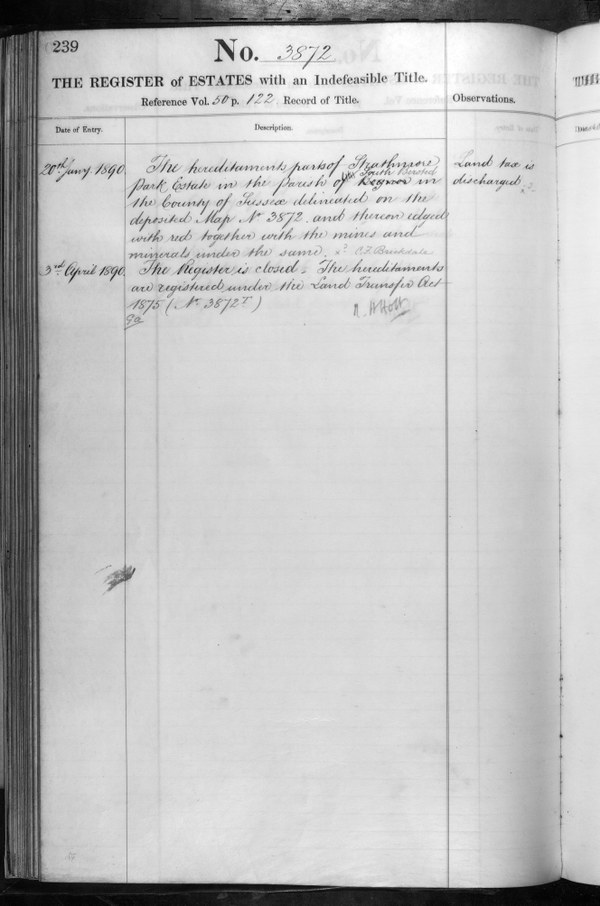 239
No. 3872
THE REGISTER of ESTATES with an Indefeasible Title.
Reference Vol. 50 p. 122 Record of Title.
Observations.
Date of Entry.
Description.
20th Jany 1890
The hereditaments parts of Strathmore
Land tax is
South Bersted
Park Estate in the Parish of Bognor in
discharged
the County of Sussex delineated on the
deposited Map No 3872 and thereon edged
with red together with the mines and
minerals under the same. C. F. Brickdale
3rd April 1890
The Register is closed. The hereditaments
are registered under the Land Transfer Act
1875 (No 3872T)